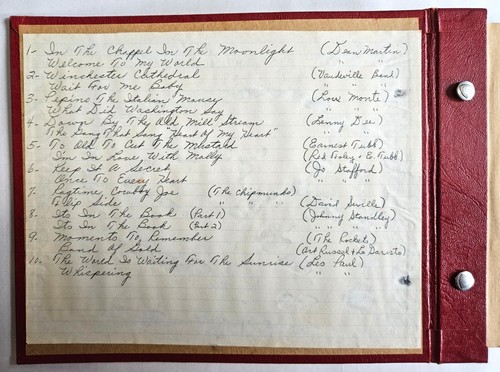 1- In The Chappel In The Moonlight (Dean Martin)
Welcome To My World " "
2- Winchester Cathedral (Vaudville Band)
Wait For Me Baby " "
3- Pepino The Italian Mousey (Lou Monte)
What Did Washington Say " "
4- Down By The Old Mill Stream (Lenny Dee)
The Gang That Sang "Heart Of My Heart" " "
5- To Old To Cut The Mustard (Earnest Tubb)
I'm In Love With Molly (Red Foley & E. Tubb)
6- Keep It A Secret (Jo Stafford)
Once To Every Heart " "
7- Ragtime Cowboy Joe (The Chipmunks)
Flip Side (David Seville)
8- Its In The Book (Part 1) (Johnny Standley)
Its In The Book (Part 2) " "
9- Moments To Remember (The Rockets)
Band Of Gold (Art Russel &
10- The World Is Waiting For The Sunrise (Les Paul)
Whispering " "